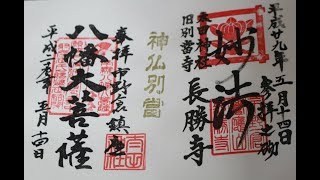 平成廿九年五月十四日
参拝之砌
妙法
本田神社
旧別当寺
長勝寺
神仏別當
奉拝
市野宮鎮座
八幡大菩薩
平成二九年五月十四日